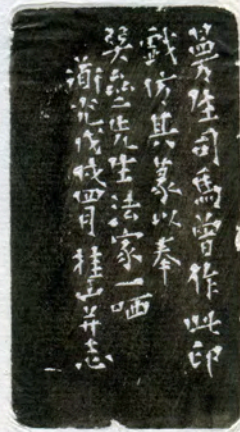 曼生司馬曾作此印
戲仿其篆以奉
先生法家一哂
道光戊戌四月桂山并志